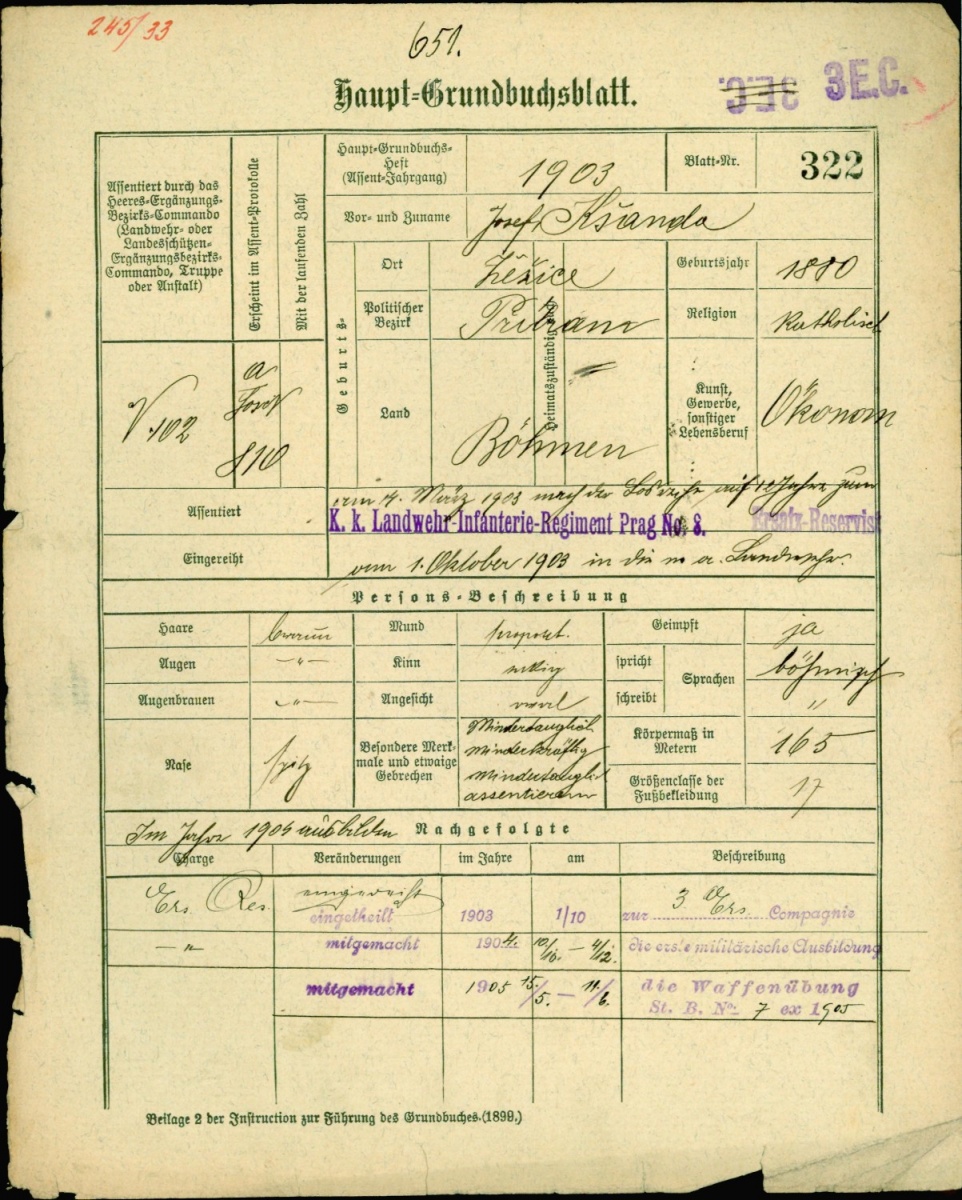 245/33
651.
Haupt-Grundbuchsblatt.
3E.C. 3E.C.
Assentiert durch das
Heeres-Ergänzungs-
Bezirks-Commando
(Landwehr- oder
Landesschützen-
Ergänzungsbezirks-
Commando, Truppe
oder Anstalt)
Erscheint im Assent-Protokolle
Mit der laufenden Zahl
Haupt-Grundbuchs-
Heft
(Assent-Jahrgang)
1903
Blatt-Nr.
322
Vor- und Zuname
Josef Kšanda
Geburts-
Ort
Žežice
Geburtsjahr
1880
Politischer
Bezirk
Přibram
Religion
Katholisch
Land
Böhmen
Kunst,
Gewerbe,
sonstiger
Lebensberuf
Ökonom
V.102
a
810
Assentiert
am 14. März 1903 nach der Losreihe auf 12 Jahre zum
K. k. Landwehr-Infanterie-Regiment Prag No. 8. Ersatz-Reservist
Eingereiht
am 1. Oktober 1903 in die Landwehr.
Persons-Beschreibung
Haare
braun
Mund
proport.
Geimpft
ja
Augen
-〃-
Kinn
spricht
Sprachen
böhmisch
Augenbrauen
-〃-
Angesicht
oval
schreibt
〃
Nase
spitz
Besondere Merk-
male und etwaige
Gebrechen
Mindertauglich
minderkräftig
mindertauglich
assentieren
Körpermaß in
Metern
165
Größenclasse der
Fußbekleidung
17
Im Jahre 1904 ausbilden Nachgefolgte
Charge
Veränderungen
im Jahre
am
Beschreibung
Ers. Res.
eingereiht
eingetheilt
1903
1/10
zur 3 Ers. Compagnie
-〃-
mitgemacht
1904.
10/10. - 4/12.
die erste militärische Ausbildung
mitgemacht
1905
15/5. - 11/6.
die Waffenübung
St. B. No. 7 ex 1905
Beilage 2 der Instruction zur Führung des Grundbuches. (1899.)